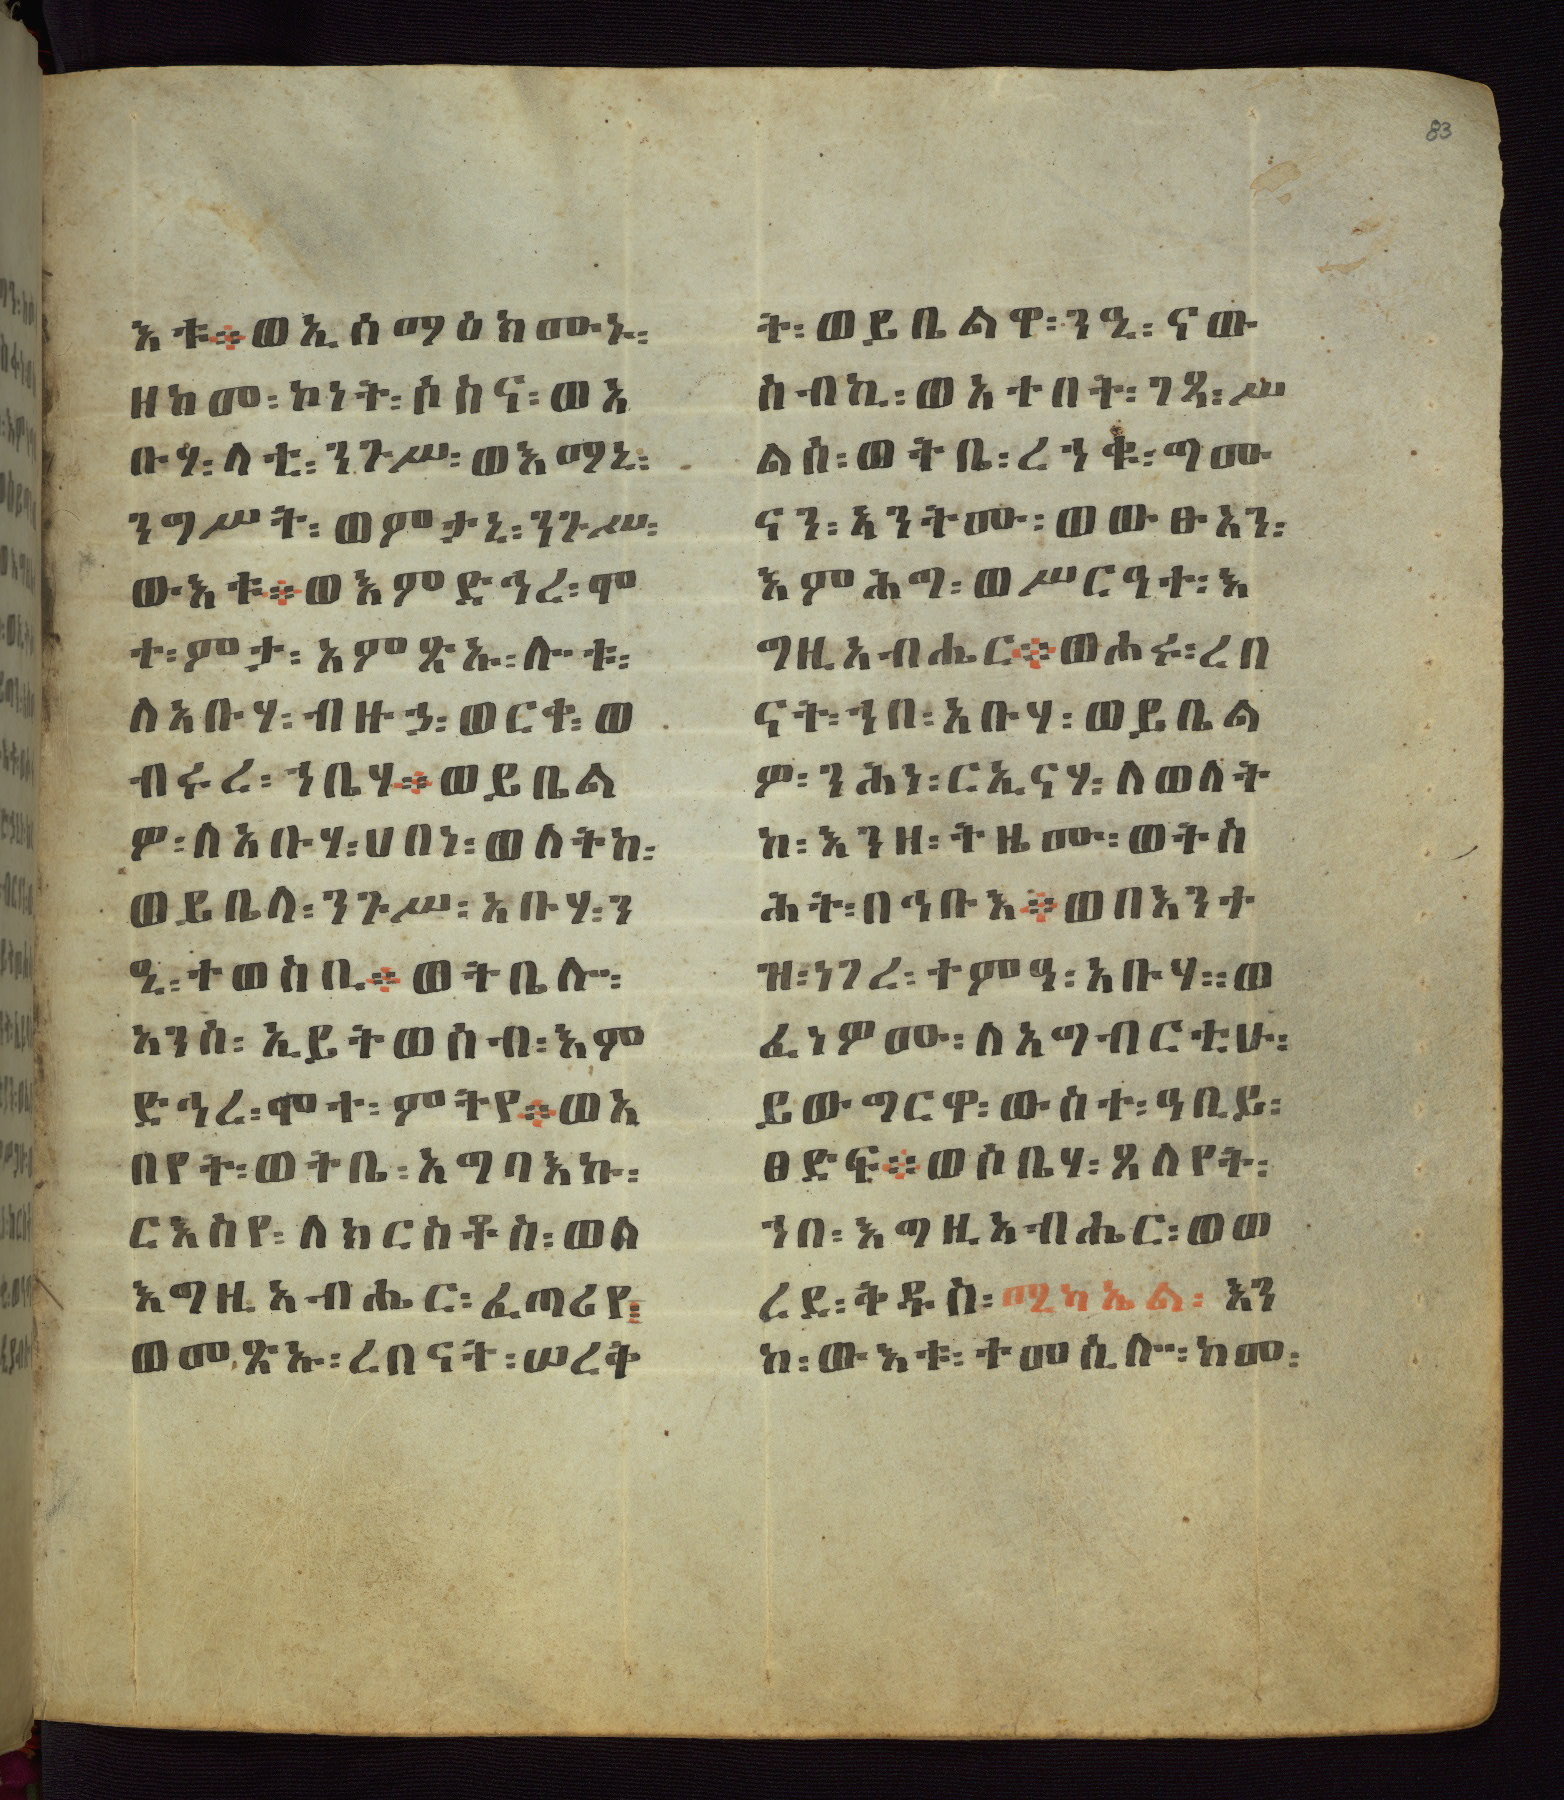 83
እቱ፨ወኢሰማዕክሙኑ፡
ዘከመ፡ኮነት፡ሶስና፡ወእ
ቡሃ፡ላቲ፡ንጉሥ፡ወእማኒ፡
ንግሥት፡ወምታኒ፡ንጉሥ፡
ውእቱ፨ወእምድኅረ፡ሞ
ተ፡ምታ፡አምጽኡ፡ሎቱ፡
ለአቡሃ፡ብዙኃ፡ወርቀ፡ወ
ብሩረ፡ኀቤሃ፨ወይቤል
ዎ፡ለአቡሃ፡ሀበነ፡ወለትከ፡
ወይቤላ፡ንጉሥ፡አቡሃ፡ን
ዒ፡ተወስቢ፨ወትቤሎ፡
አንሰ፡ኢይትወሰብ፡እም
ድኅረ፡ሞተ፡ምትየ፨ወአ
በየት፡ወትቤ፡አግባእኩ፡
ርእስየ፡ለክርስቶስ፡ወለ
እግዚአብሔር፡ፈጣሪየ፡
ወመጽኡ፡ረበናት፡ሠረቅ
ት፡ወይቤልዋ፡ንዒ፡ናው
ስብኪ፡ወአተበት፡ገጻ፡ሥ
ልሰ፡ወትቤ፡ረኀቁ፡ጣሙ
ናን፡አንትሙ፡ወውፁአን፡
እምሕግ፡ወሥርዓተ፡እ
ግዚአብሔር፨ወሐሩ፡ረበ
ናት፡ኀበ፡አቡሃ፡ወይቤል
ዎ፡ንሕነ፡ርኢናሃ፡ለወለት
ከ፡እንዘ፡ትዜሙ፡ወትስ
ሕት፡በኅቡእ፨ወበእንተ
ዝ፡ነገረ፡ተምዓ፡አቡሃ፡፡ወ
ፈነዎሙ፡ለአግብርቲሁ፡
ይውግርዋ፡ውስተ፡ዓቢይ፡
ፀድፍ፨ወሶቤሃ፡ጸለየት፡
ኀበ፡እግዚአብሔር፡ወወ
ረደ፡ቅዱስ፡ሚካኤል፡እን
ከ፡ውእቱ፡ተመሲሎ፡ከመ፡